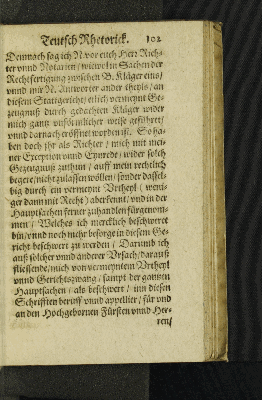 Teutsch Rhetorick. 102
Demnach sag ich N vor euch Herr Rich-
ter vnnd Notarien / wiewol in Sachen der
Rechtfertigung zwischen B. Kläger eins /
vnnd mir N. Antworter ander theyls / an
diesem Stattgericht / etlich vermeynt Ge-
zeugnuß durch gedachten Kläger wider
mich gantz vnförmlicher weise geführet /
vnnd darnach eröffnet worden ist. So ha-
ben doch jhr als Richter / mich mit mei-
ner Exception vnnd Eynrede / wider solch
Gezeugnuß zuthun / auff mein rechtlich
begere / nicht zulassen wöllen / sonder dassel-
big durch ein vermeynt Vrtheyl (weni-
ger dann mit Recht) aberkennt / vnd in der
Hauptsachen ferner zuhandlen fürgenom-
men / Welches ich mercklich beschweret
bin / vnnd noch mehr besorge in diesem Ge-
richt beschwert zu werden / Darumb ich
auß solcher vnnd anderer Vrsach / darauß
fliessende / mich von vermeyntem Vrtheyl
vnnd Gerichtszwang / sampt der gantzen
Hauptsachen / als beschwert / inn diesen
Schrifften beruff vnnd appellier / für vnd
an den Hochgebornen Fürsten vnnd Her-
ren /